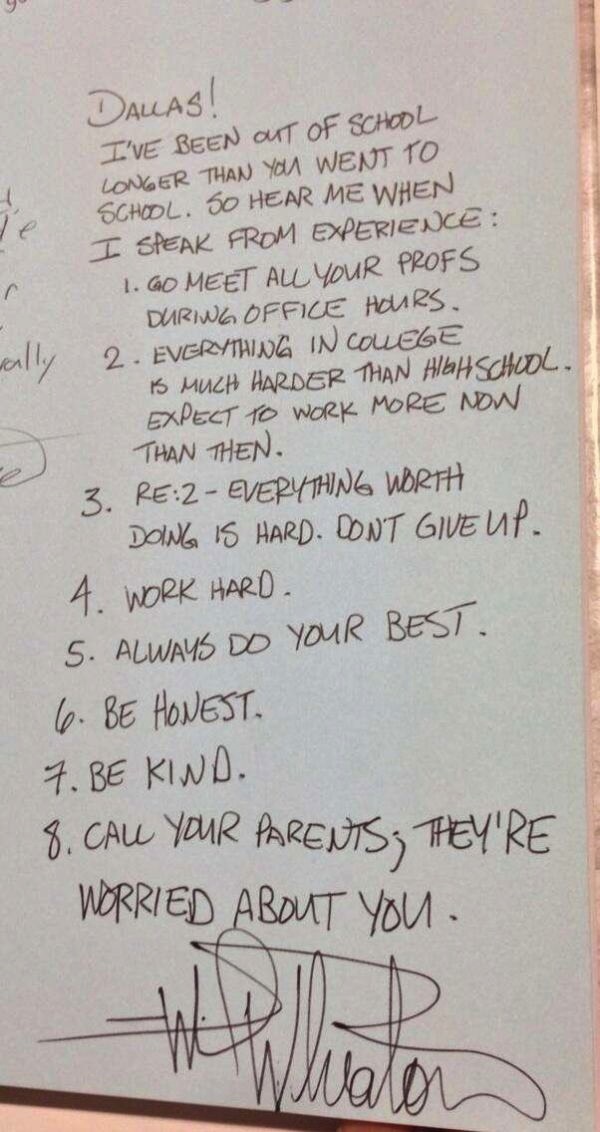 DALLAS!
I'VE BEEN OUT OF SCHOOL
LONGER THAN YOU WENT TO
SCHOOL. SO HEAR ME WHEN
I SPEAK FROM EXPERIENCE:
1. GO MEET ALL YOUR PROFS
DURING OFFICE HOURS.
2. EVERYTHING IN COLLEGE
IS MUCH HARDER THAN HIGH SCHOOL.
EXPECT TO WORK MORE NOW
THAN THEN.
3. RE:2 - EVERYTHING WORTH
DOING IS HARD. DON'T GIVE UP.
4. WORK HARD.
5. ALWAYS DO YOUR BEST.
6. BE HONEST.
7. BE KIND.
8. CALL YOUR PARENTS; THEY'RE
WORRIED ABOUT YOU.
Wil Wheaton